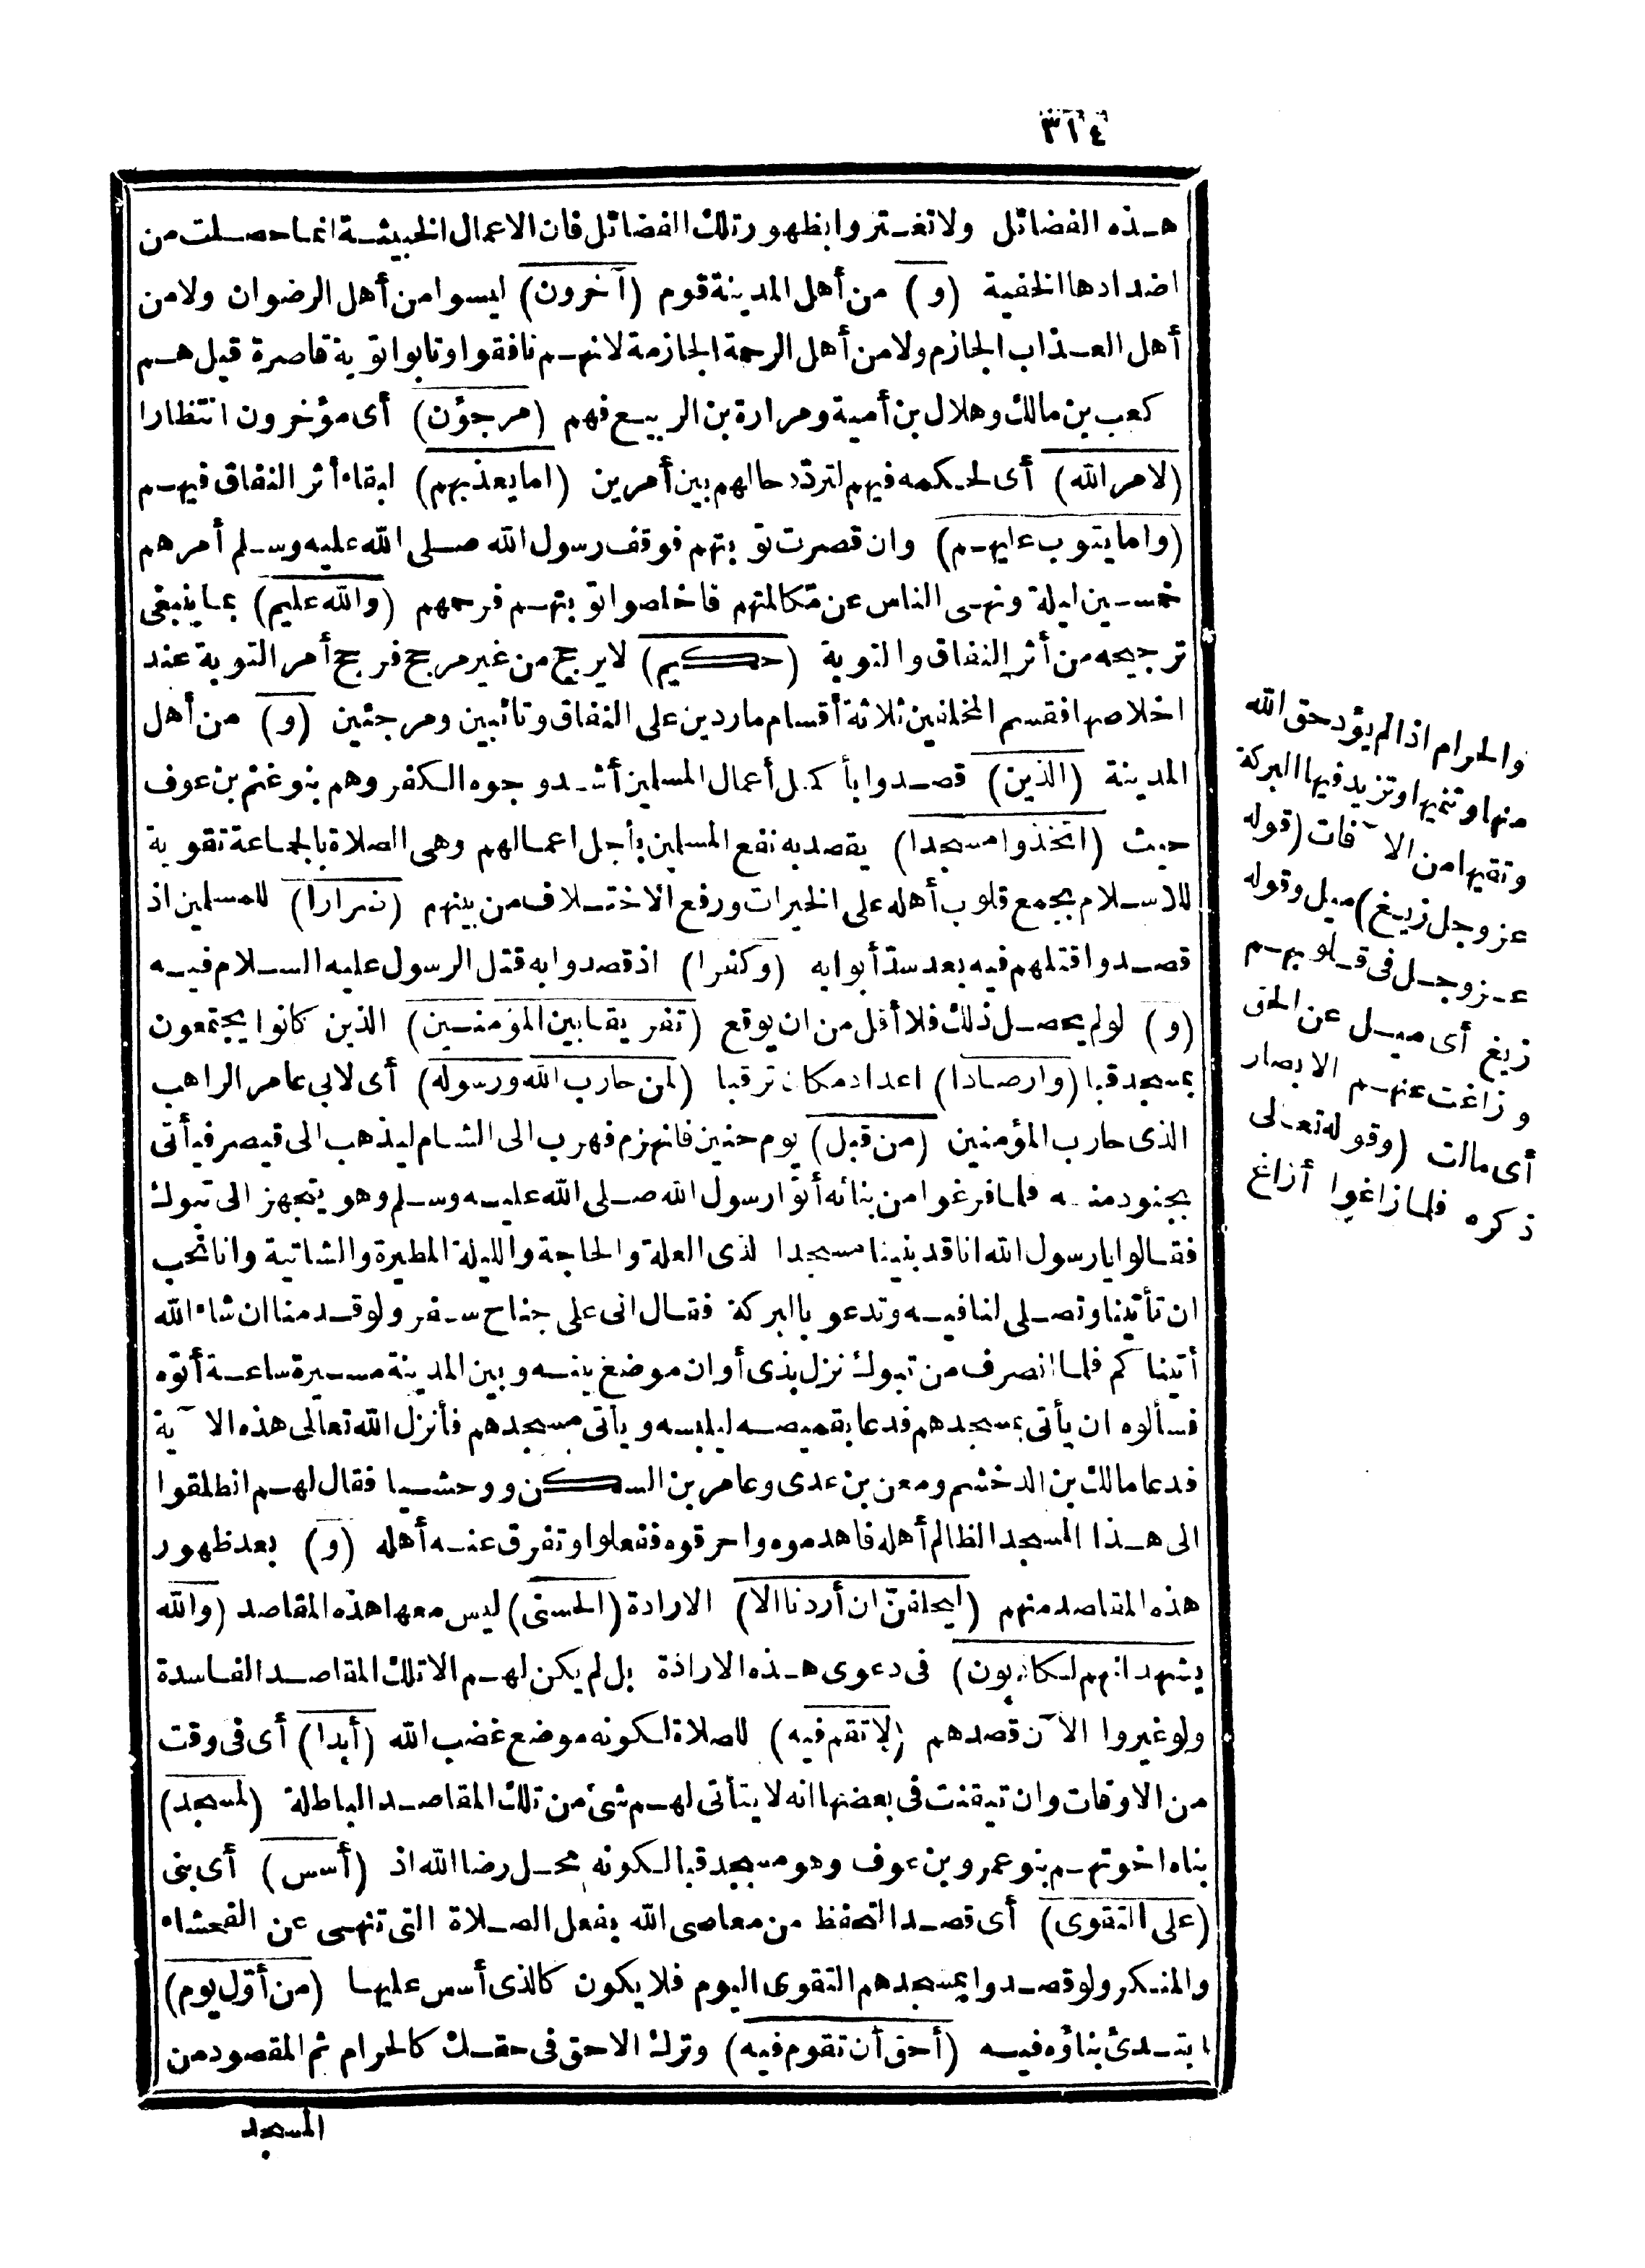 ٣١٤
هذه الفضائل ولا تغتروا بظهور تلك الفضائل فان الاعمال الخبيثة انما حصلت من
اضدادها الخفية (و) من أهل المدينة قوم (آخرون) ليسوا من أهل الرضوان ولا من
أهل العذاب الجازم ولا من أهل الرحمة الجازمة لانهم نافقوا وتابوا توبة قاصرة قيل هم
كعب بن مالك وهلال بن أمية ومرارة بن الربيع فهم (مرجؤن) أى مؤخرون انتظارا
(لامر الله) أى لحكمه فيهم لتردّد حالهم بين أمرين (اما يعذبهم) لبقاء أثر النفاق فيهم
(واما يتوب عليهم) وان قصرت توبتهم فوقف رسول الله صلى الله عليه وسلم أمرهم
خمسين ليلة ونهى الناس عن مكالمتهم فاخلصوا توبتهم فرحمهم (والله عليم) بما ينبغى
ترجيحه من أثر النفاق والتوبة (حكيم) لا يرجح من غير مرجح فرجح أمر التوبة عند
اخلاصها فقسم المخلفين ثلاثة أقسام ماردين على النفاق وتائبين ومرجئين (و) من أهل
المدينة (الذين) قصدوا بأكمل أعمال المسلمين أشد وجوه الكفر وهم بنو غنم بن عوف
حيث (اتخذوا مسجدا) يقصد به نفع المسلمين بأجل اعمالهم وهى الصلاة بالجماعة تقوية
للاسلام بجمع قلوب أهله على الخيرات ورفع الاختلاف من بينهم (ضرارا) للمسلمين اذ
قصدوا قتلهم فيه بعد سدّ أبوابه (وكفرا) اذ قصدوا به قتل الرسول عليه السلام فيه
(و) لو لم يحصل ذلك فلا أقل من ان يوقع (تفريقا بين المؤمنين) الذين كانوا يجتمعون
بمسجد قبا (وارصادا) اعداد مكان ترقبا (لمن حارب الله ورسوله) أى لابى عامر الراهب
الذى حارب المؤمنين (من قبل) يوم حنين فانهزم فهرب الى الشام ليذهب الى قيصر فيأتى
بجنود منه فلما فرغوا من بنائه أتوا رسول الله صلى الله عليه وسلم وهو يتجهز الى تبوك
فقالوا يا رسول الله انا قد بنينا مسجدا لذى العلة والحاجة والليلة المطيرة والشاتية وانا نحب
ان تأتينا وتصلى لنا فيه وتدعو بالبركة فقال انى على جناح سفر ولو قدمنا ان شاء الله
أتيناكم فلما انصرف من تبوك نزل بذى أوان موضع بينه وبين المدينة مسيرة ساعة أتوه
فسألوه ان يأتى بمسجدهم فدعا بقميصه ليلبسه ويأتى مسجدهم فأنزل الله تعالى هذه الآية
فدعا مالك بن الدخشم ومعن بن عدى وعامر بن السكن ووحشيا فقال لهم انطلقوا
الى هذا المسجد الظالم أهله فاهدموه واحرقوه ففعلوا وتفرق عنه أهله (و) بعد ظهور
هذه المقاصد منهم (ليحلفنّ ان أردنا الا) الارادة (الحسنى) ليس معها هذه المقاصد (والله
يشهد انهم لكاذبون) فى دعوى هذه الارادة بل لم يكن لهم الا تلك المقاصد الفاسدة
ولو غيروا الآن قصدهم (لا تقم فيه) للصلاة لكونه موضع غضب الله (أبدا) أى فى وقت
من الاوقات وان تيقنت فى بعضها انه لا يتأتى لهم شئ من تلك المقاصد الباطلة (لمسجد)
بناه اخوتهم بنو عمرو بن عوف وهو مسجد قبا لكونه محل رضا الله اذ (أسس) أى بنى
(على التقوى) أى قصد التحفظ من معاصى الله بفعل الصلاة التى تنهى عن الفحشاء
والمنكر ولو قصدوا بمسجدهم التقوى اليوم فلا يكون كالذى أسس عليها (من أوّل يوم)
ابتدئ بناؤه فيه (أحق أن تقوم فيه) وترك الاحق فى حقك كالحرام ثم المقصود من
المسجد
والحرام اذا لم يؤد حق الله
منها وتنميها وتزيد فيها البركة
وتقيها من الآفات (قوله
عز وجل زيغ) ميل وقوله
عز وجل فى قلوبهم
زيغ أى ميل عن الحق
وزاغت عنهم الابصار
أى مالت (وقوله تعالى
ذكره فلما زاغوا أزاغ